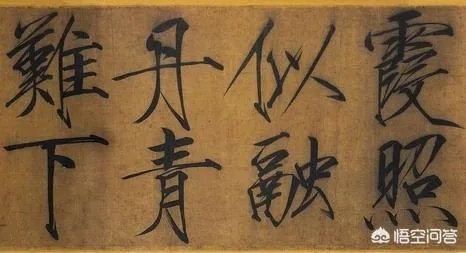 霞照
似融
丹青
難下
悟空问答